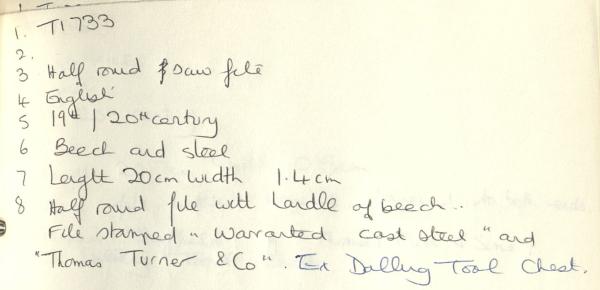 1. T1733
2.
3 Half round & saw file
4 English
5 19th / 20th century
6 Beech and steel
7 Length 20cm width 1.4cm
8 Half round file with handle of beech..
File stamped "Warranted cast steel" and
"Thomas Turner & Co". Ex Dalling Tool Chest.